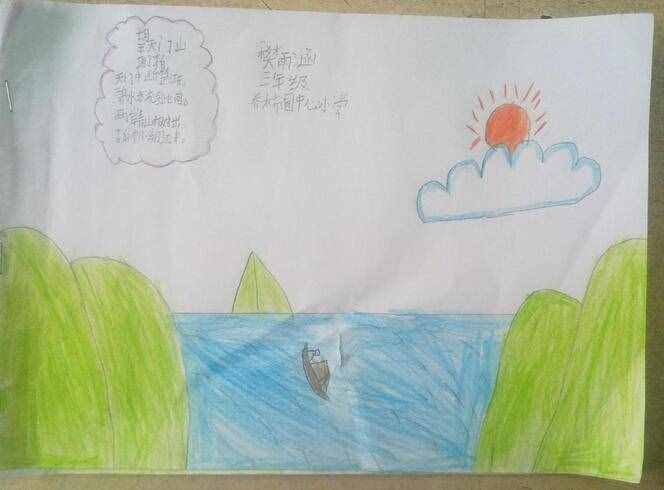 望
天门山
天门中断楚江开,
碧水东流至此回。
两岸青山相对出,
孤帆一片日边来。
樊雨涵
三年级
中心小学